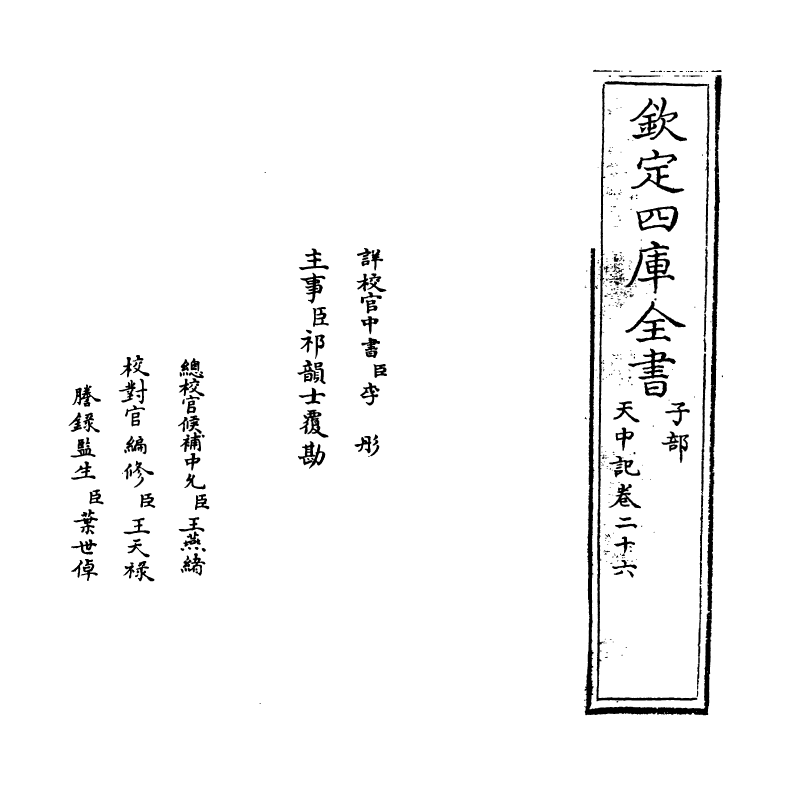 欽定四庫全書
子部
天中記卷二十六
詳校官中書臣李彤
主事臣祁韻士覆勘
總校官候補中允臣王燕緒
校對官編修臣王天祿
謄錄監生臣葉世倬